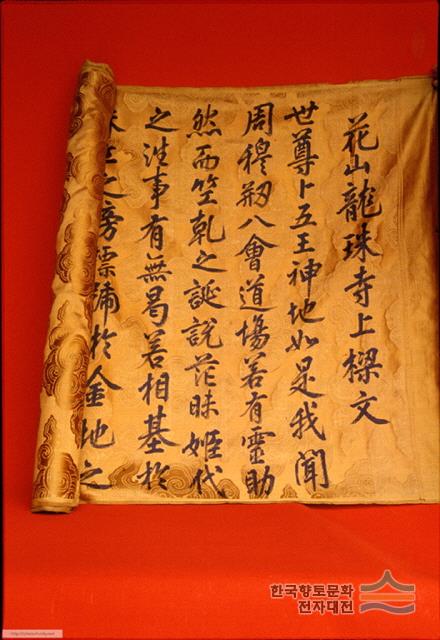 花山龍珠寺上樑文
世尊卜五王神地如是我聞
周穆刱八會道場若有靈助
然而竺乾之誕說茫昧姬代
之往事有無曷若相基於
之旁標號於金地之
한국향토문화
전자대전